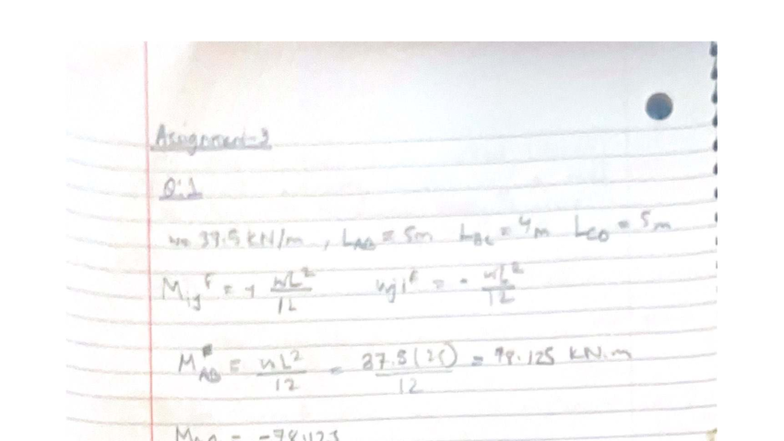 Assignment-3
Q:1
w= 37.5 KN/m , L_AB = 5m L_BC = 4m L_CD = 5m
M_ij^F = + wL²/12 M_ji^F = - wL²/12
M_AB^F = wL²/12 = 37.5(25)/12 = 78.125 KN.m
= -78.125